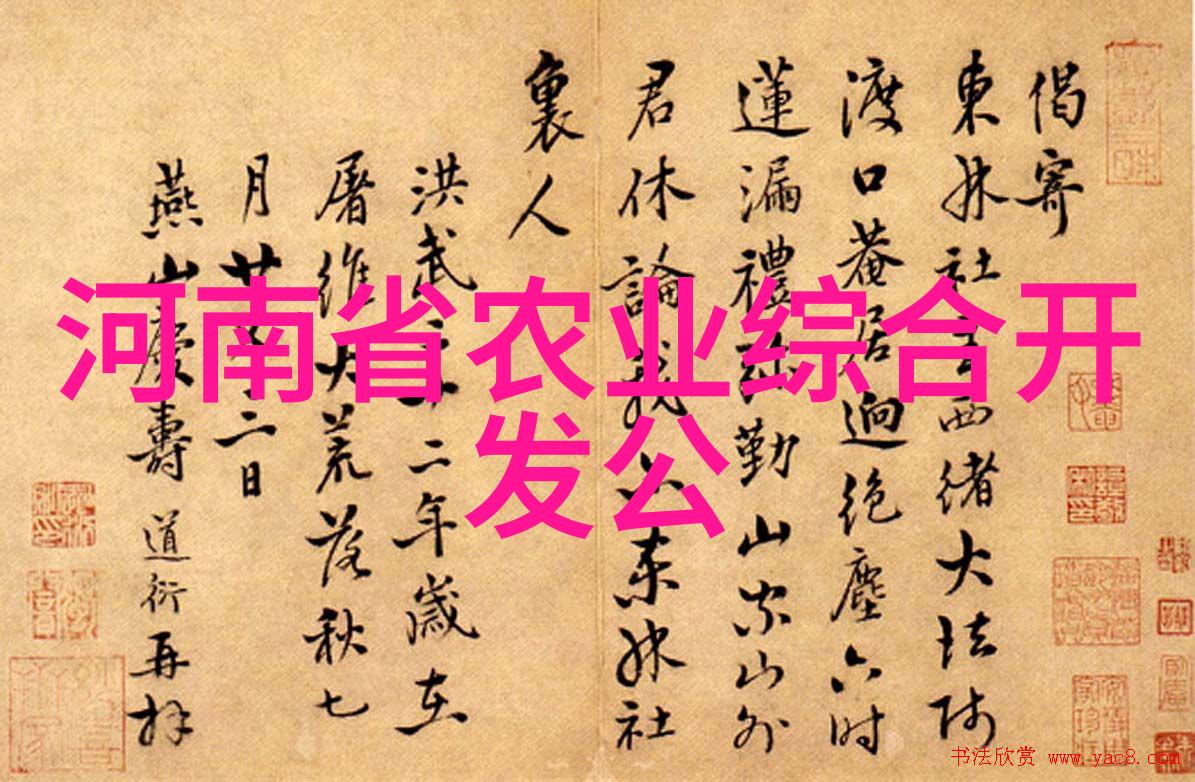 偈寄
東林社主西緒大法師
渡口菴居迥絕塵六時
蓮漏禮彌勤山家山外
君休論我亦東林社
裏人
洪武二十二年歲在
屠維大荒落秋七
月廿二日
燕山慶壽道衍再拜
河南省农业综合开
发公
书法欣赏 www.yac8.com